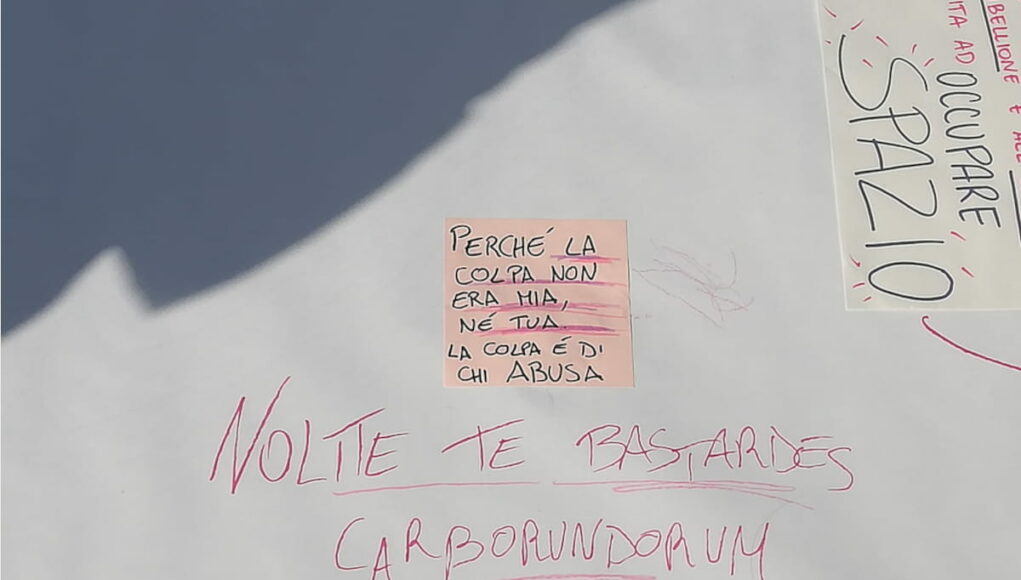 BELLIONE E ALL
ITA AD OCCUPARE
SPAZIO
PERCHÉ LA
COLPA NON
ERA MIA,
NÉ TUA.
LA COLPA É DI
CHI ABUSA
NOLITE TE BASTARDES
CARBORUNDORUM